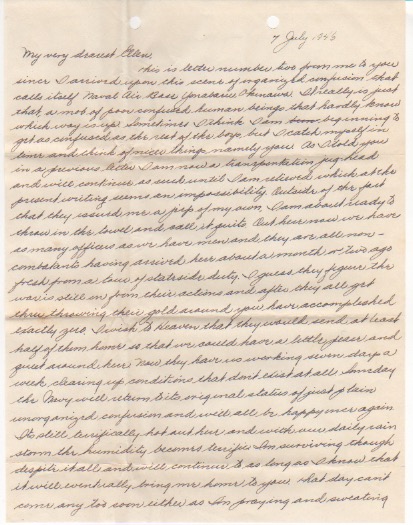 7 July 1946
My very dearest Ellen,
This is letter number two from me to you
since I arrived upon this scene of organized confusion that
calls itself Naval Air Base Yonabaru Okinawa. It really is just
that, a mob of poor confused human beings that hardly know
which way is up. Sometimes I think I am beginning to
get as confused as the rest of the boys but I catch myself in
time and think of nicer things namely you. As I told you
in a previous letter I am now a transportation jughead
and will continue as such until I am relieved which at the
present writing seems an impossibility. Outside of the fact
that they issued me a jeep of my own I am about ready to
throw in the towel and call it quits. Out here now we have
as many officers as we have men and they are all non-
combatants having arrived here about a month or two ago
fresh from a tour of stateside duty. I guess they figure the
war is still on from their actions and after they all get
thru throwing their gold around you have accomplished
exactly zero. I wish to Heaven that they would send at least
half of them home so that we could have a little peace and
quiet around here. Now they have us working seven days a
week clearing up conditions that don't exist at all. Someday
the Navy will return to its original status of just plain
unorganized confusion and we'll all be happy once again
Its still terrifically hot out here and with our daily rain
storm the humidity becomes terrific. Im surviving though
despite it all and will continue to as long as I know that
it will eventually bring me home to you. That day can't
come any too soon either as Im praying and sweating